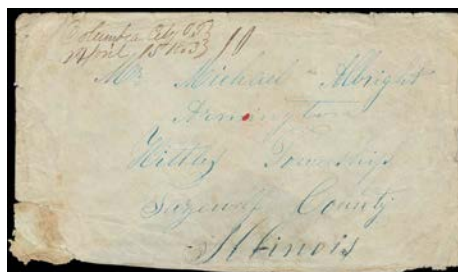 Columbia City O.T. 10
April 15 1853
Mr Michael Albright
Armington
Hittley Township
Tazewell County
Illinois